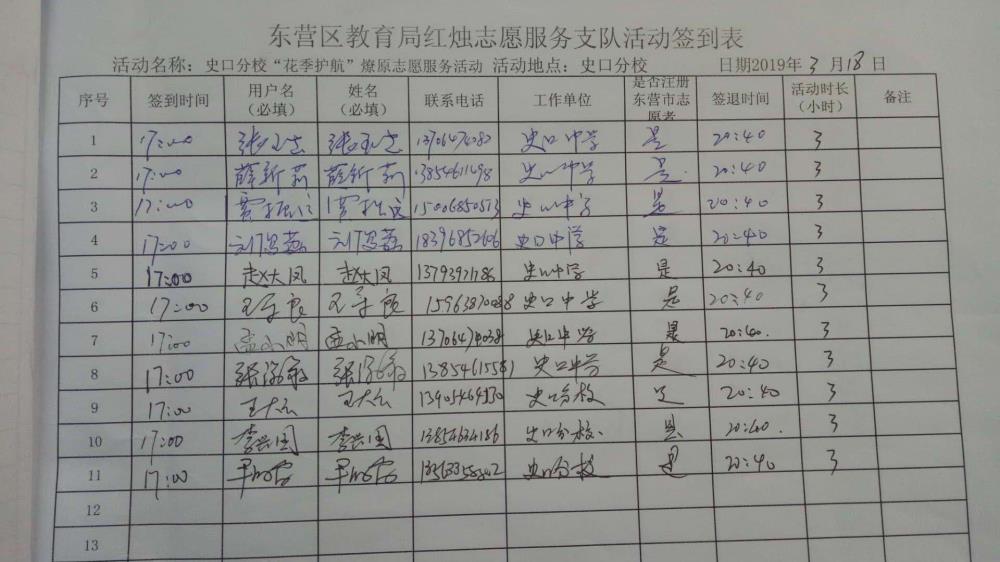 东营区教育局红烛志愿服务支队活动签到表
活动名称：史口分校“花季护航”燎原志愿服务活动 活动地点：史口分校 日期2019年 3 月 18 日
序号 签到时间 用户名（必填） 姓名（必填） 联系电话 工作单位 是否注册东营市志愿者 签退时间 活动时长（小时） 备注
1 17:00 史口中学 是 20:40 3
2 17:00 薛新莉 薛新莉 13854611498 史口中学 是 20:40 3
3 17:00 15006850573 史口中学 是 20:40 3
4 17:00 18396852606 史口中学 是 20:40 3
5 17:00 赵大凤 赵大凤 史口中学 是 20:40 3
6 17:00 史口中学 是 20:40 3
7 17:00 孟小明 孟小明 史口中学 是 20:40. 3
8 17:00 史口中学 是 20:40 3
9 17:00 史口分校 是 20:40 3
10 17:00 李兴国 李兴国 史口分校. 是 20:40. 3
11 17:00 史口分校 是 20:40 3
12
13